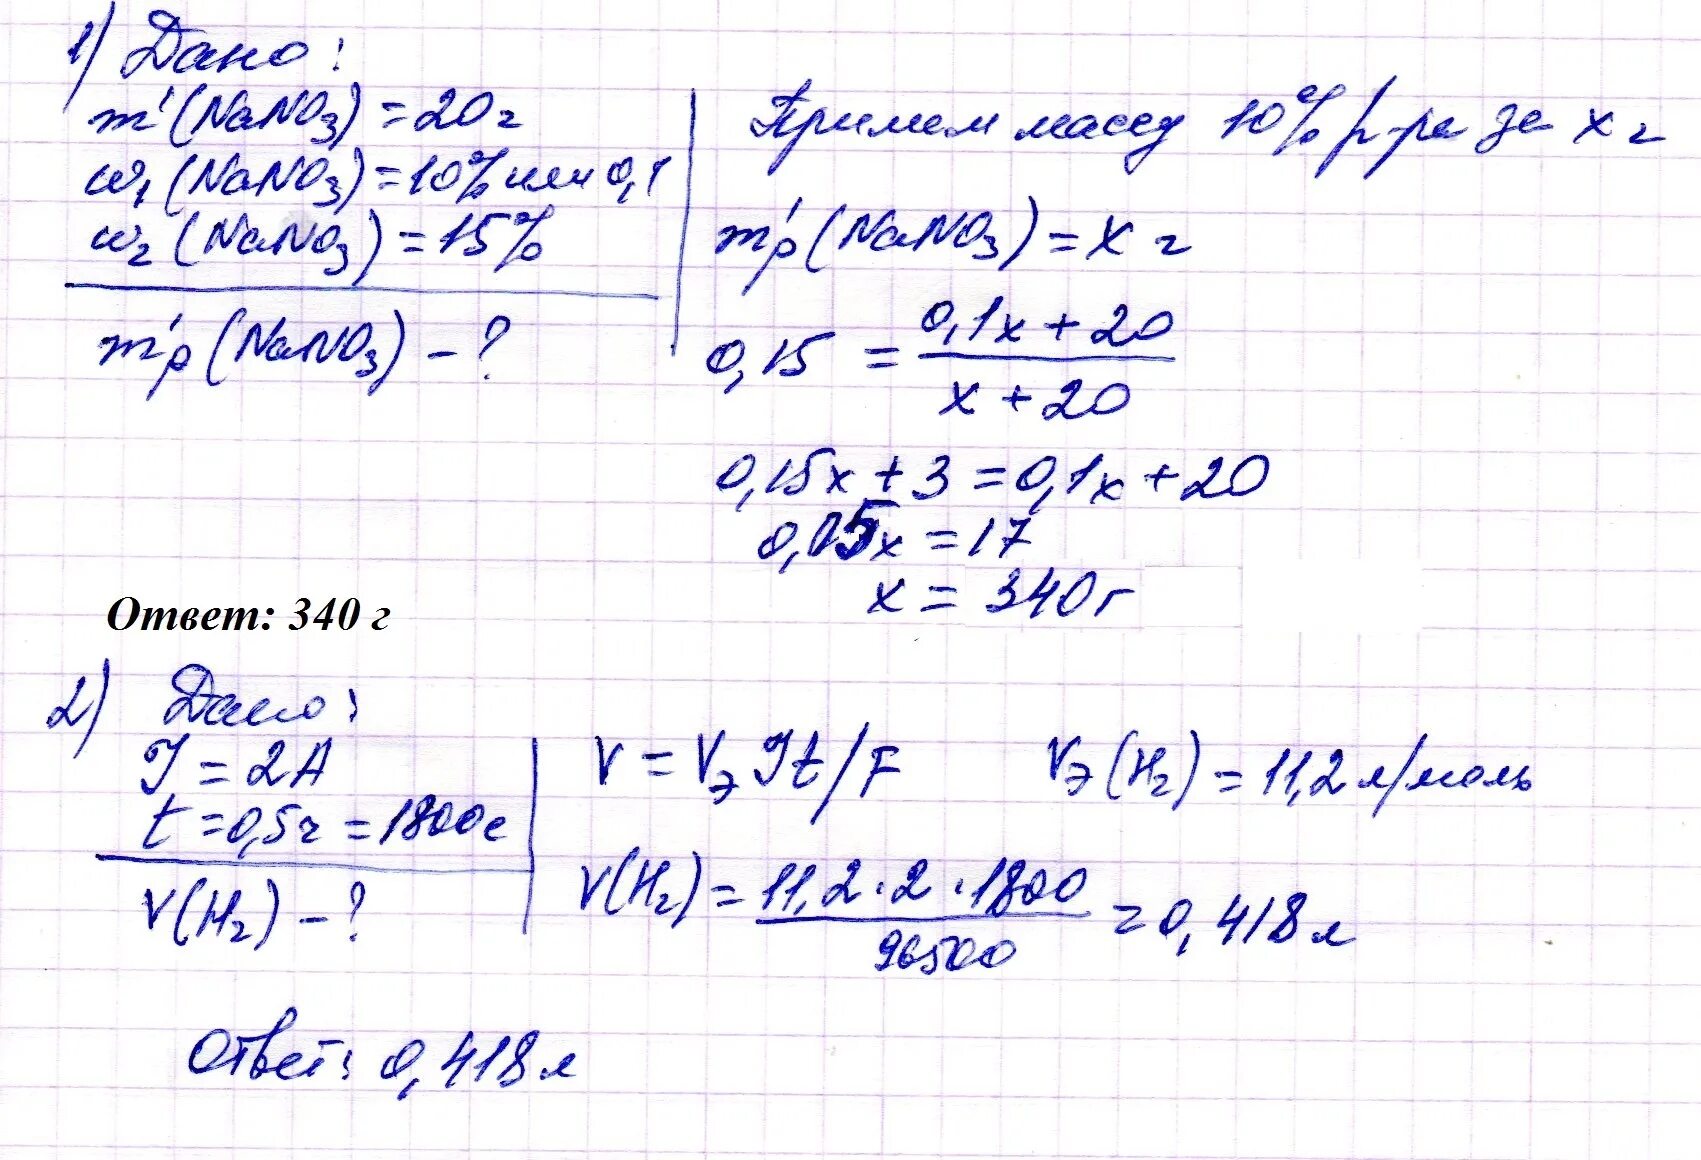 1) Дано:
m'(NaNO₃) = 20 г
w₁(NaNO₃) = 10% или 0,1
w₂(NaNO₃) = 15%
m'р(NaNO₃) – ?
Примем массу 10% р-ра за x г
m'р(NaNO₃) = x г
0,15 = (0,1x + 20)/(x + 20)
0,15x + 3 = 0,1x + 20
0,05x = 17
x = 340 г
Ответ: 340 г
2) Дано:
J = 2A
t = 0,5ч = 1800с
V(H₂) – ?
V = Vэ Jt/F Vэ(H₂) = 11,2 л/моль
V(H₂) = 11,2·2·1800/96500 = 0,418 л
Ответ: 0,418 л